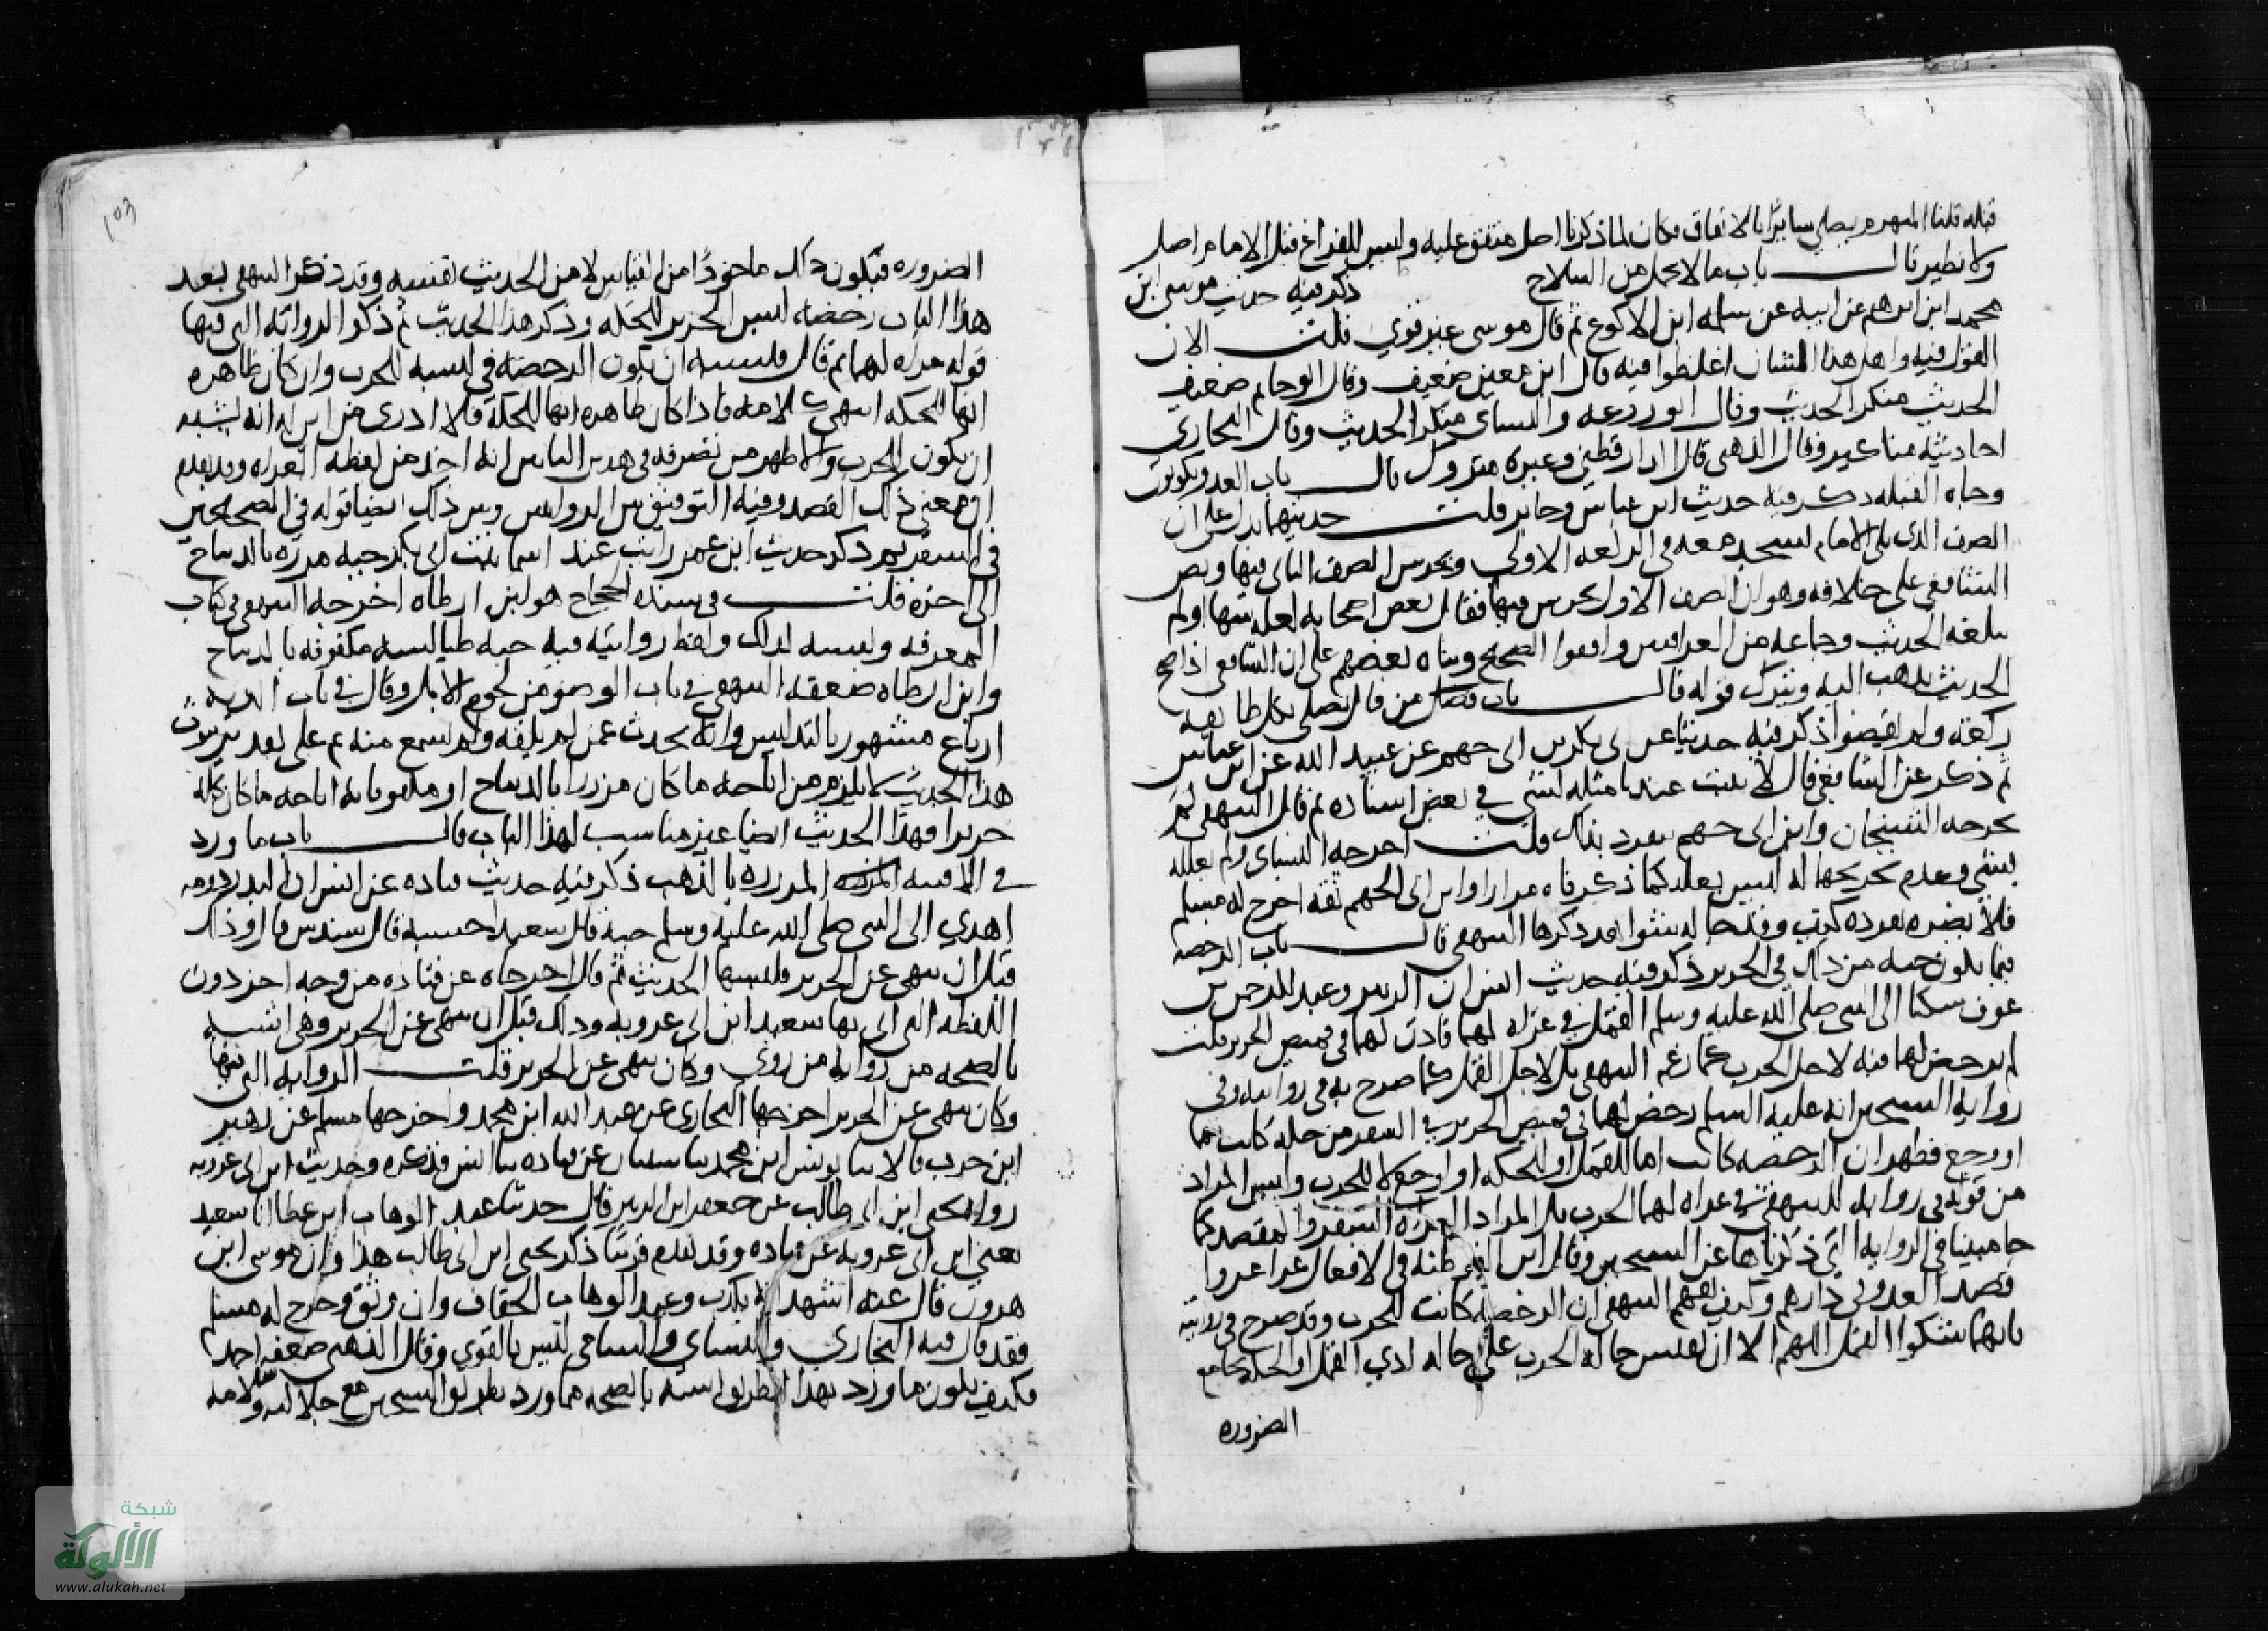 قبله قلنا المنهزم يصلي سايرًا بالاتفاق فكان لما ذكرنا اصل متفق عليه وليس للفراغ قبل الامام اصل
ولا نظير قال باب ما لا يحمل من السلاح ذكر فيه حديث موسى ابن
محمد ابن ابرهيم عن ابيه عن سلمه ابن الاكوع ثم قال موسى غير قوي قلت الان
القول فيه واهل هذا الشان اغلظوا فيه قال ابن معين ضعيف وقال ابو حاتم ضعيف
الحديث منكر الحديث وقال ابو زرعه والنساي منكر الحديث وقال البخاري
احاديثه مناكير وقال الذهبي قال الدارقطني وغيره متروك قال باب العدو يكونون
وجاه القبله ذكر فيه حديث ابن عباس وجابر قلت حديثهما يدل على ان
الصف الذي يلي الامام يسجد معه في الركعه الاولي ويحرس الصف الثاني فيها ونص
الشافعي على خلافه وهو ان الصف الاول يحرس فيها فقال بعض اصحابه لعله سها او لم
يبلغه الحديث وجماعه من العراقيين وافقوا الصحيح وبناه بعضهم على ان الشافعي اذا صح
الحديث يذهب اليه ويترك قوله قال باب فصل من قال يصلي بكل طايفه
ركعه ولم يقضوا ذكر فيه حديثا عن ابي بكر بن ابي جهم عن عبيد الله عن ابن عباس
ثم ذكر عن الشافعي قال لا يثبت عندنا مثله لشي في بعض اسناده ثم قال البيهقي لم
يخرجه الشيخان وابن ابي جهم تفرد بذلك قلت اخرجه النساي ولم يعلله
بشي وعدم تخريجهما له ليس بعله كما ذكرناه مرارا وابن ابي الجهم ثقه اخرج له مسلم
فلا يضره تفرده كيف وقد جا له شواهد ذكرها البيهقي قال باب الرخصه
فيما يكون جبه من ذلك في الحرير ذكر فيه حديث انس ان الزبير وعبد الرحمن بن
عوف شكيا الى النبي صلى الله عليه وسلم القمل في غزاه لهما فاذن لهما في قميص الحرير قلت
لم يرخص لهما فيه لاجل الحرب كما زعم البيهقي بل لاجل القمل كما صرح به في روايته وفي
روايه الشيخين انه عليه السلم رخص لهما في قميص الحرير في السفر من حكه كانت بهما
او وجع فظهر ان الرخصه كانت اما للقمل او للحكه او لوجع لا للحرب وليس المراد
من قوله في روايه البيهقي في غزاه لهما الحرب بل المراد بالغزاه السفر والمقصد كما
جا مبينا في الروايه التي ذكرناها عن الشيخين وقال ابن القوطيه في الافعال غزا غزوا
قصد العدو في دارهم وكيف يفهم البيهقي ان الرخصه كانت للحرب وقد صرح في روايته
بانهما شكوا القمل اللهم الا ان يقيس حاله الحرب على حاله اذي القمل او الحكه بجامع
الضروره
١٥٣
الضروره فيكون ذلك ماخوذًا من القياس لا من الحديث نفسه وقد ذكر البيهقي بعد
هذا الباب رخصه لبس الحرير للحكه وذكر هذا الحديث ثم ذكر الروايه التي فيها
قوله غزاه لهما ثم قال فيشبه ان يكون الرخصه في لبسه للحرب وان كان ظاهره
انها للحكه انتهى كلامه فاذا كان ظاهره انها للحكه فلا ادري من اين له انه يشبه
ان يكون للحرب والاظهر من تصرفه في هذين البابين انه اخذ من لفظه الغزاه وقد تقدم
ان معنى ذلك القصد وفيه التوفيق بين الروايتين وبين ذلك ايضا قوله في الصحيحين
في السفر ثم ذكر حديث ابن عمر رايت عند اسما بنت ابي بكر جبه مزرره بالديباج
الى اخره قلت في سنده الحجاج هو ابن ارطاه اخرجه البيهقي في كتاب
المعرفه وليسه لذلك ولفظ روايته فيه جبه طيالسه مكفوفه بالديباج
وابن ارطاه ضعفه البيهقي في باب الوضو من لحوم الابل وقال في باب الديه
ارباع مشهور بالتدليس وانه يحدث عمن لم يلقه ولم يسمع منه ثم على تقدير ثبوت
هذا الحديث لا يلزم من اباحه ما كان مزررا بالديباج او مكفوفا به اباحه ما كان كله
حريرا فهذا الحديث ايضا غير مناسب لهذا الباب قال باب ما ورد
في الاقبيه المزرره بالذهب ذكر فيه حديث قتاده عن انس ان اكيدر دومه
اهدي الى النبي صلى الله عليه وسلم جبه قال سعيد احسبه قال سندس قال وذلك
قبل ان ينهى عن الحرير فلبسها الحديث ثم قال اخرجاه عن قتاده من وجه اخر دون
اللفظه التي اتى بها سعيد ابن ابي عروبه وذلك قبل ان ينهى عن الحرير وهي اشبه
بالصحه من روايه من روي وكان ينهى عن الحرير قلت الروايه التي فيها
وكان ينهى عن الحرير اخرجها البخاري عن عبد الله ابن محمد واخرجها مسلم عن زهير
ابن حرب قالا ثنا يونس ابن محمد ثنا شيبان عن قتاده ثنا انس فذكره وحديث ابن ابي عروبه
رواه يحيى ابن ابي طالب عن جعفر ابن الزبير قال حدثنا عبد الوهاب ابن عطا انا سعيد
يعني ابن ابي عروبه عن قتاده وقد تقدم قريبا ذكر يحيى ابن ابي طالب هذا وان موسى ابن
هرون قال عنه اشهد انه يكذب وعبد الوهاب الخفاف وان وثق وخرج له مسلم
فقد قال فيه البخاري والنساي والساجي ليس بالقوي وقال الذهبي ضعفه احمد
فكيف يكون ما ورد بهذا الطريق اشبه بالصحه مما ورد بطريق الشيخين مع جلالته وسلامته
شبكة
الألوكة
www.alukah.net